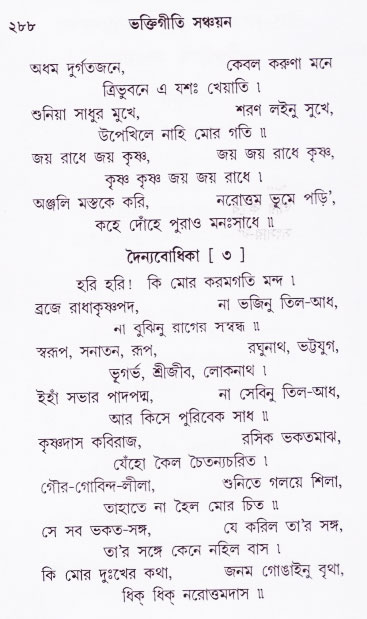 ২৮৮ ভক্তিগীতি সঞ্চয়ন
অধম দুর্গতজনে, কেবল করুণা মনে
ত্রিভুবনে এ যশঃ খেয়াতি ৷
শুনিয়া সাধুর মুখে, শরণ লইনু সুখে,
উপেখিলে নাহি মোর গতি ॥
জয় রাধে জয় কৃষ্ণ, জয় জয় রাধে কৃষ্ণ,
কৃষ্ণ কৃষ্ণ জয় জয় রাধে ৷
অঞ্জলি মস্তকে করি, নরোত্তম ভূমে পড়ি’,
কহে দোঁহে পুরাও মনঃসাধে ॥
দৈন্যবোধিকা [ ৩ ]
হরি হরি! কি মোর করমগতি মন্দ ৷
ব্রজে রাধাকৃষ্ণপদ, না ভজিনু তিল-আধ,
না বুঝিনু রাগের সম্বন্ধ ॥
স্বরূপ, সনাতন, রূপ, রঘুনাথ, ভট্টযুগ,
ভূগর্ভ, শ্রীজীব, লোকনাথ ৷
ইহাঁ সভার পাদপদ্ম, না সেবিনু তিল-আধ,
আর কিসে পুরিবেক সাধ ॥
কৃষ্ণদাস কবিরাজ, রসিক ভকতমাঝ,
যেঁহো কৈল চৈতন্যচরিত ৷
গৌর-গোবিন্দ-লীলা, শুনিতে গলয়ে শিলা,
তাহাতে না হৈল মোর চিত ॥
সে সব ভকত-সঙ্গ, যে করিল তা’র সঙ্গ,
তা’র সঙ্গে কেনে নহিল বাস ৷
কি মোর দুঃখের কথা, জনম গোঙাইনু বৃথা,
ধিক্ ধিক্ নরোত্তমদাস ॥